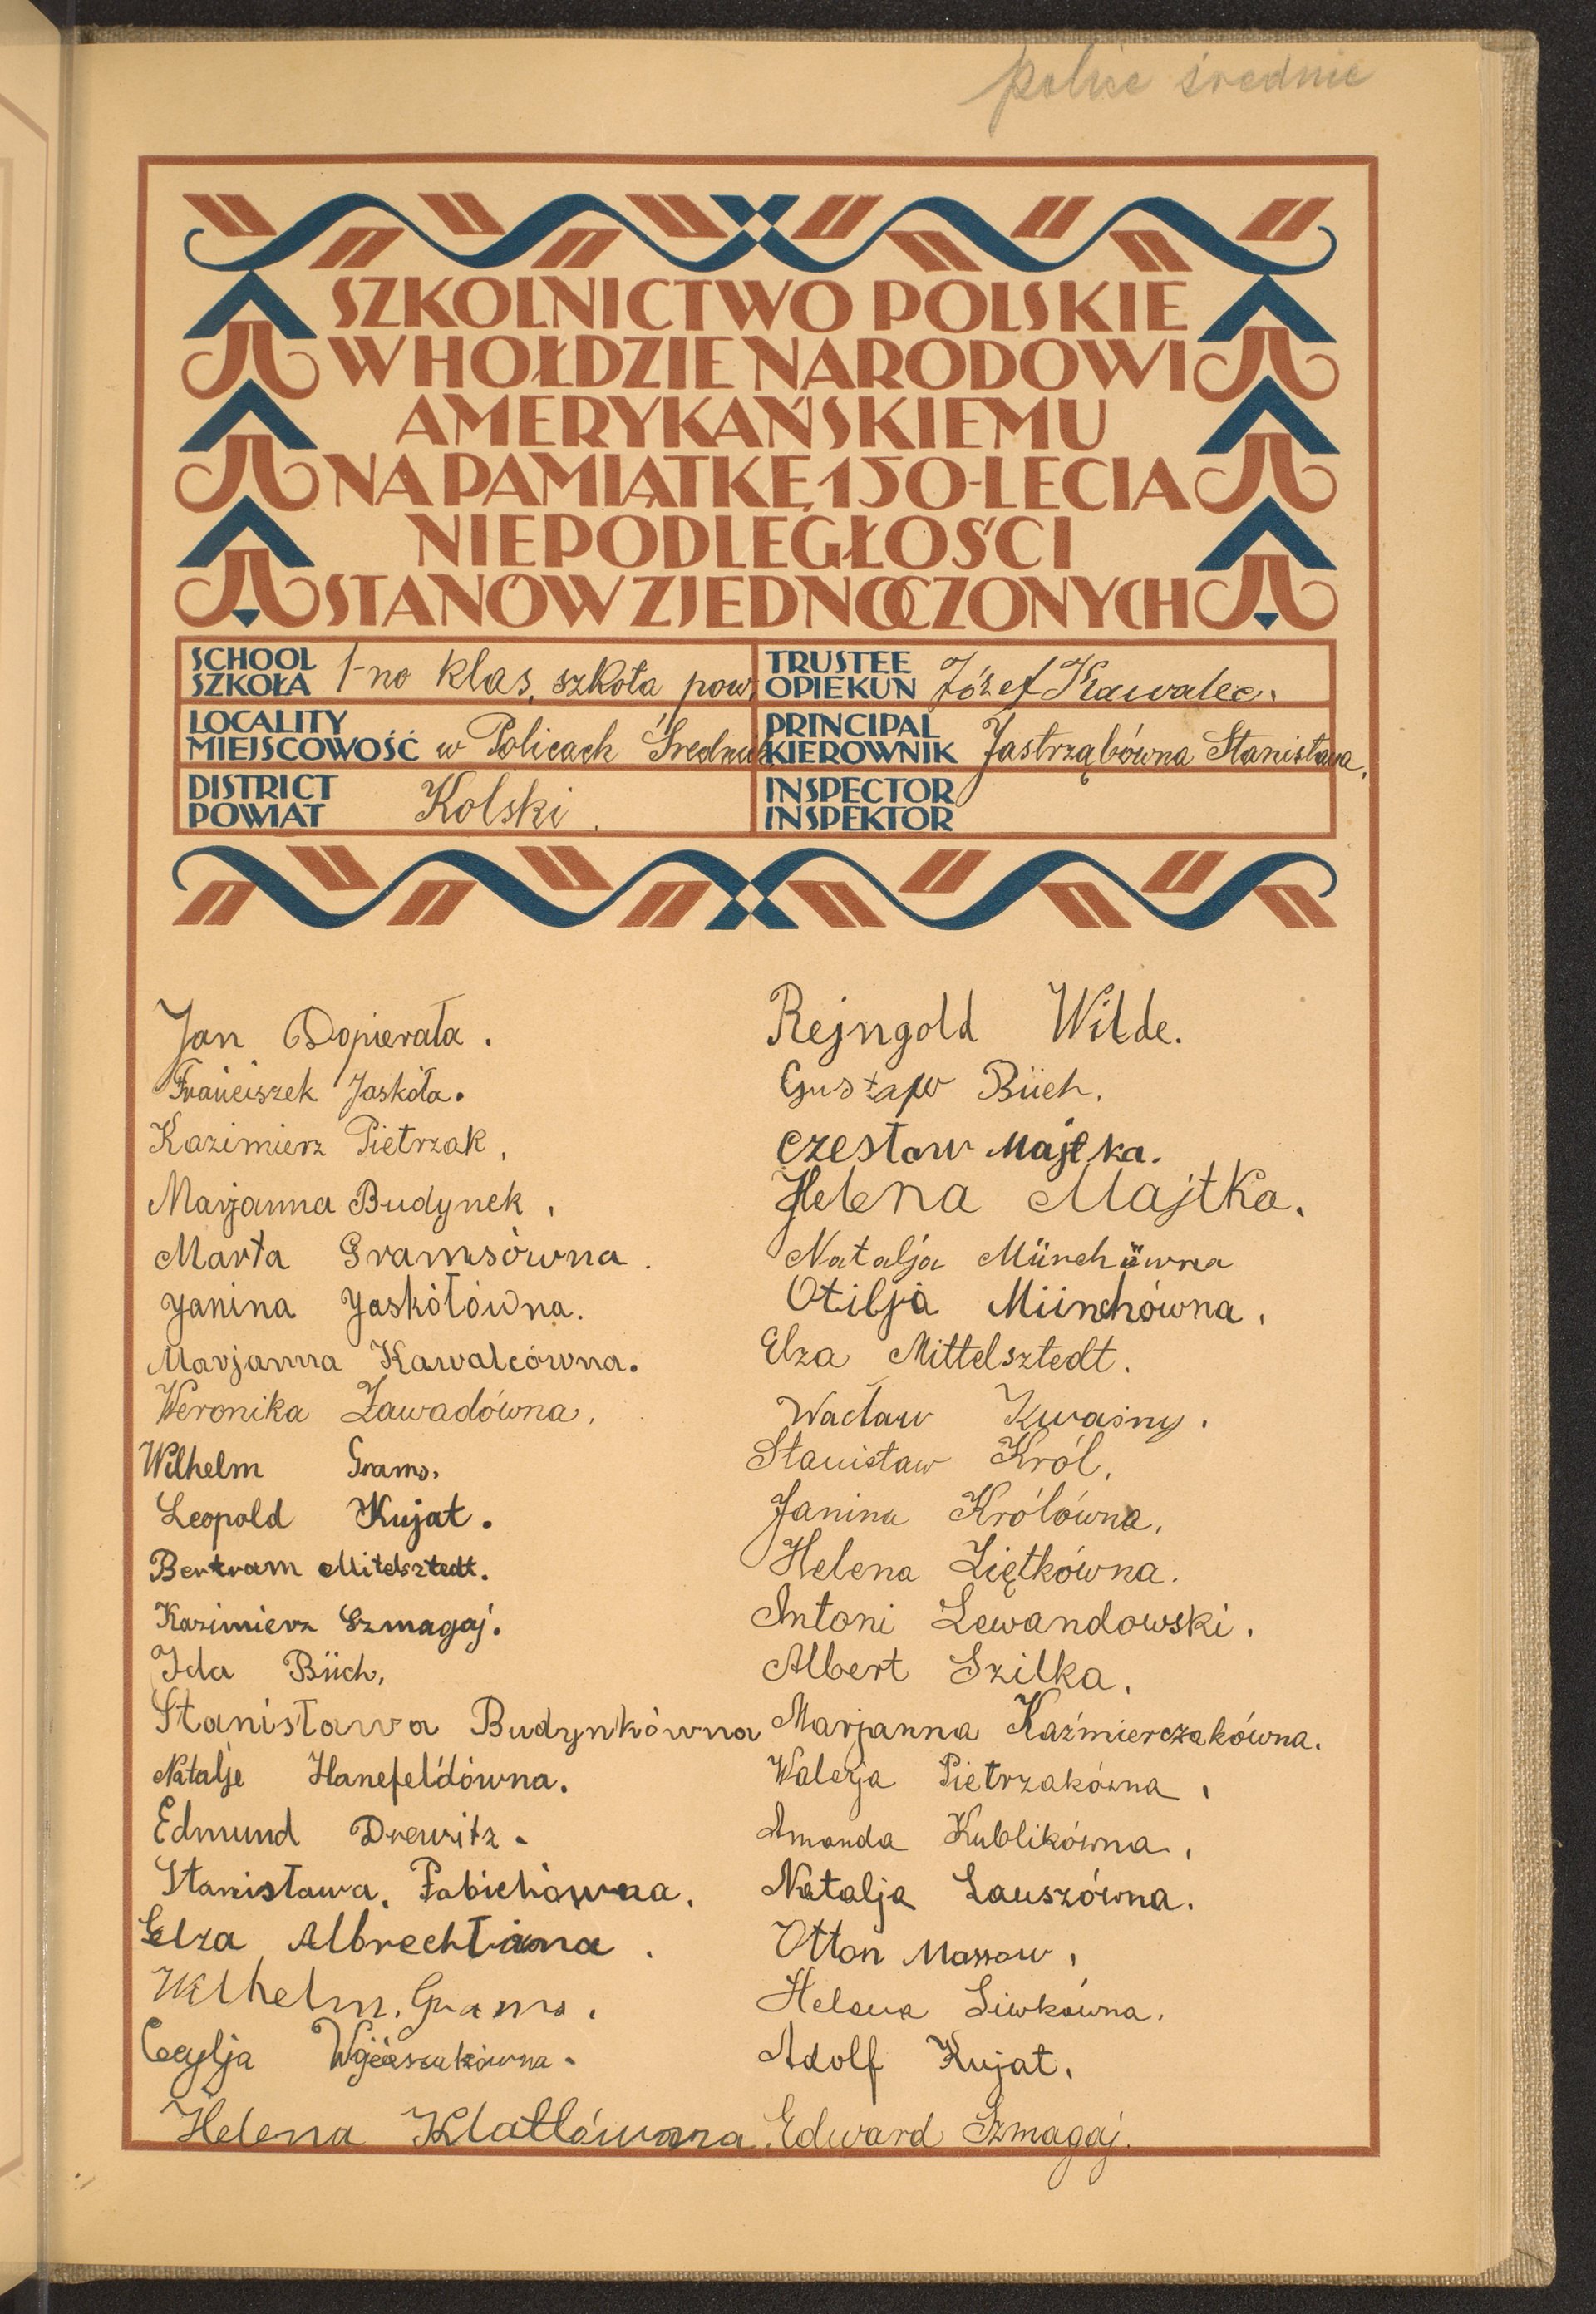 police średnie
SZKOLNICTWO POLSKIE
W HOŁDZIE NARODOWI
AMERYKAŃSKIEMU
NA PAMIĄTKĘ 150-LECIA
NIEPODLEGŁOŚCI
STANÓW ZJEDNOCZONYCH
SCHOOL
SZKOŁA 1-no klas. szkoła pow.
TRUSTEE
OPIEKUN Józef Kawalec.
LOCALITY
MIEJSCOWOŚĆ w Policach Średnich
PRINCIPAL
KIEROWNIK Jastrząbówna Stanisława.
DISTRICT
POWIAT Kolski.
INSPECTOR
INSPEKTOR
Jan Dopierała.
Franciszek Jaskóła.
Kazimierz Pietrzak.
Marjanna Budynek.
Marta Gramsówna.
Janina Jaskółówna.
Marjanna Kawalcówna.
Weronika Zawadówna.
Wilhelm Grams.
Leopold Kujat.
Bertram Mitelsztedt.
Kazimierz Szmagaj.
Ida Büch.
Stanisława Budynkówna
Natalje Hanefeldówna.
Edmund Drewitz.
Stanisława. Fabichówna.
Elza Albrechtówna.
Wilhelm. Grams.
Cecylja
Helena
Rejngold Wilde.
Gustaw Büch.
Czesław Majtka.
Helena Majtka.
Natalja Münchówna
Otilja Münchówna.
Elza Mittelsztedt.
Wacław Kwaśny.
Stanisław Król.
Janina Królówna.
Helena Ziętkówna.
Antoni Lewandowski.
Albert Szilka.
Marjanna Kaźmierczakówna.
Walerja Pietrzakówna.
Amanda Kublikówna.
Natalja Lauszówna.
Otton Massow.
Helena Siwkówna.
Adolf Kujat.
Edward Szmagaj.